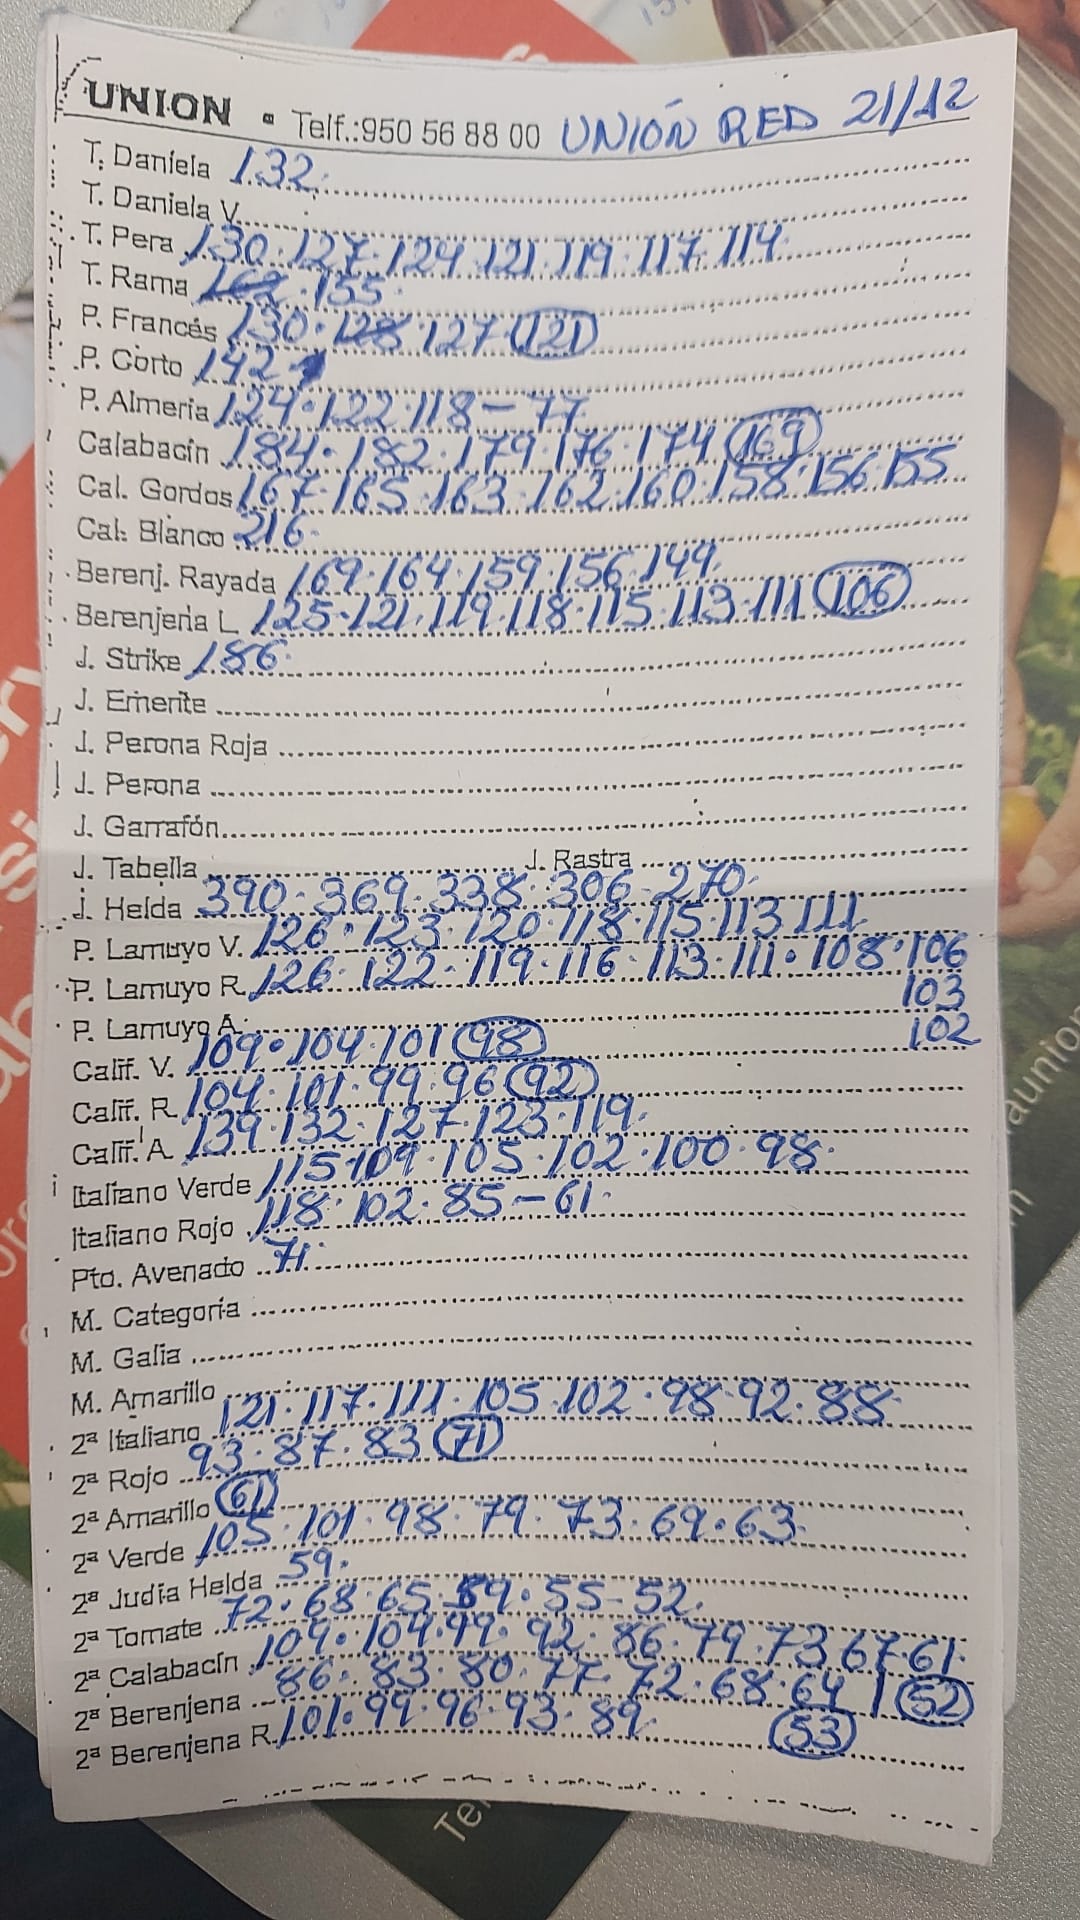 UNION - Telf.:950 56 88 00 UNIÓN RED 21/12
T. Daniela 132.
T. Daniela V.
T. Pera 130.127.124.121.119.117.114.
T. Rama 162.155.
P. Francés 130.128 127.121
P. Corto 142.
P. Almería 124.122.118-77
Calabacín 184.182.179.176.174 169
Cal. Gordos 167.165.163.162.160.158.156.155
Cal. Blanco 216.
Berenj. Rayada 169.164.159.156.149.
Berenjena L 125.121.119.118.115.113.111 106
J. Strike 186.
J. Emerite
J. Perona Roja
J. Perona
J. Garrafón
J. Tabella J. Rastra
J. Helda 390.369.338.306-270.
P. Lamuyo V. 126.123.120.118.115.113.111
P. Lamuyo R. 126.122.119.116.113.111.108.106
103
P. Lamuyo A. 102
Calif. V. 109.104.101 98
Calif. R 104.101.99.96 92
Calif. A 139.132.127.123.119.
Italiano Verde 115.109.105.102.100.98.
Italiano Rojo 118.102.85-61.
Pto. Avenado 71.
M. Categoría
M. Galia
M. Amarillo
2ª Italiano 121.117.111.105.102.98.92.88
2ª Rojo 93.87.83 71
2ª Amarillo 61
2ª Verde 105.101.98.79.73.69.63.
2ª Judía Helda 59.
2ª Tomate 72.68.65.59.55-52.
2ª Calabacín 109.104.99.92.86.79.73.67.61.
2ª Berenjena 86.83.80.77.72.68.64 52
2ª Berenjena R. 101.99.96.93.89. 53